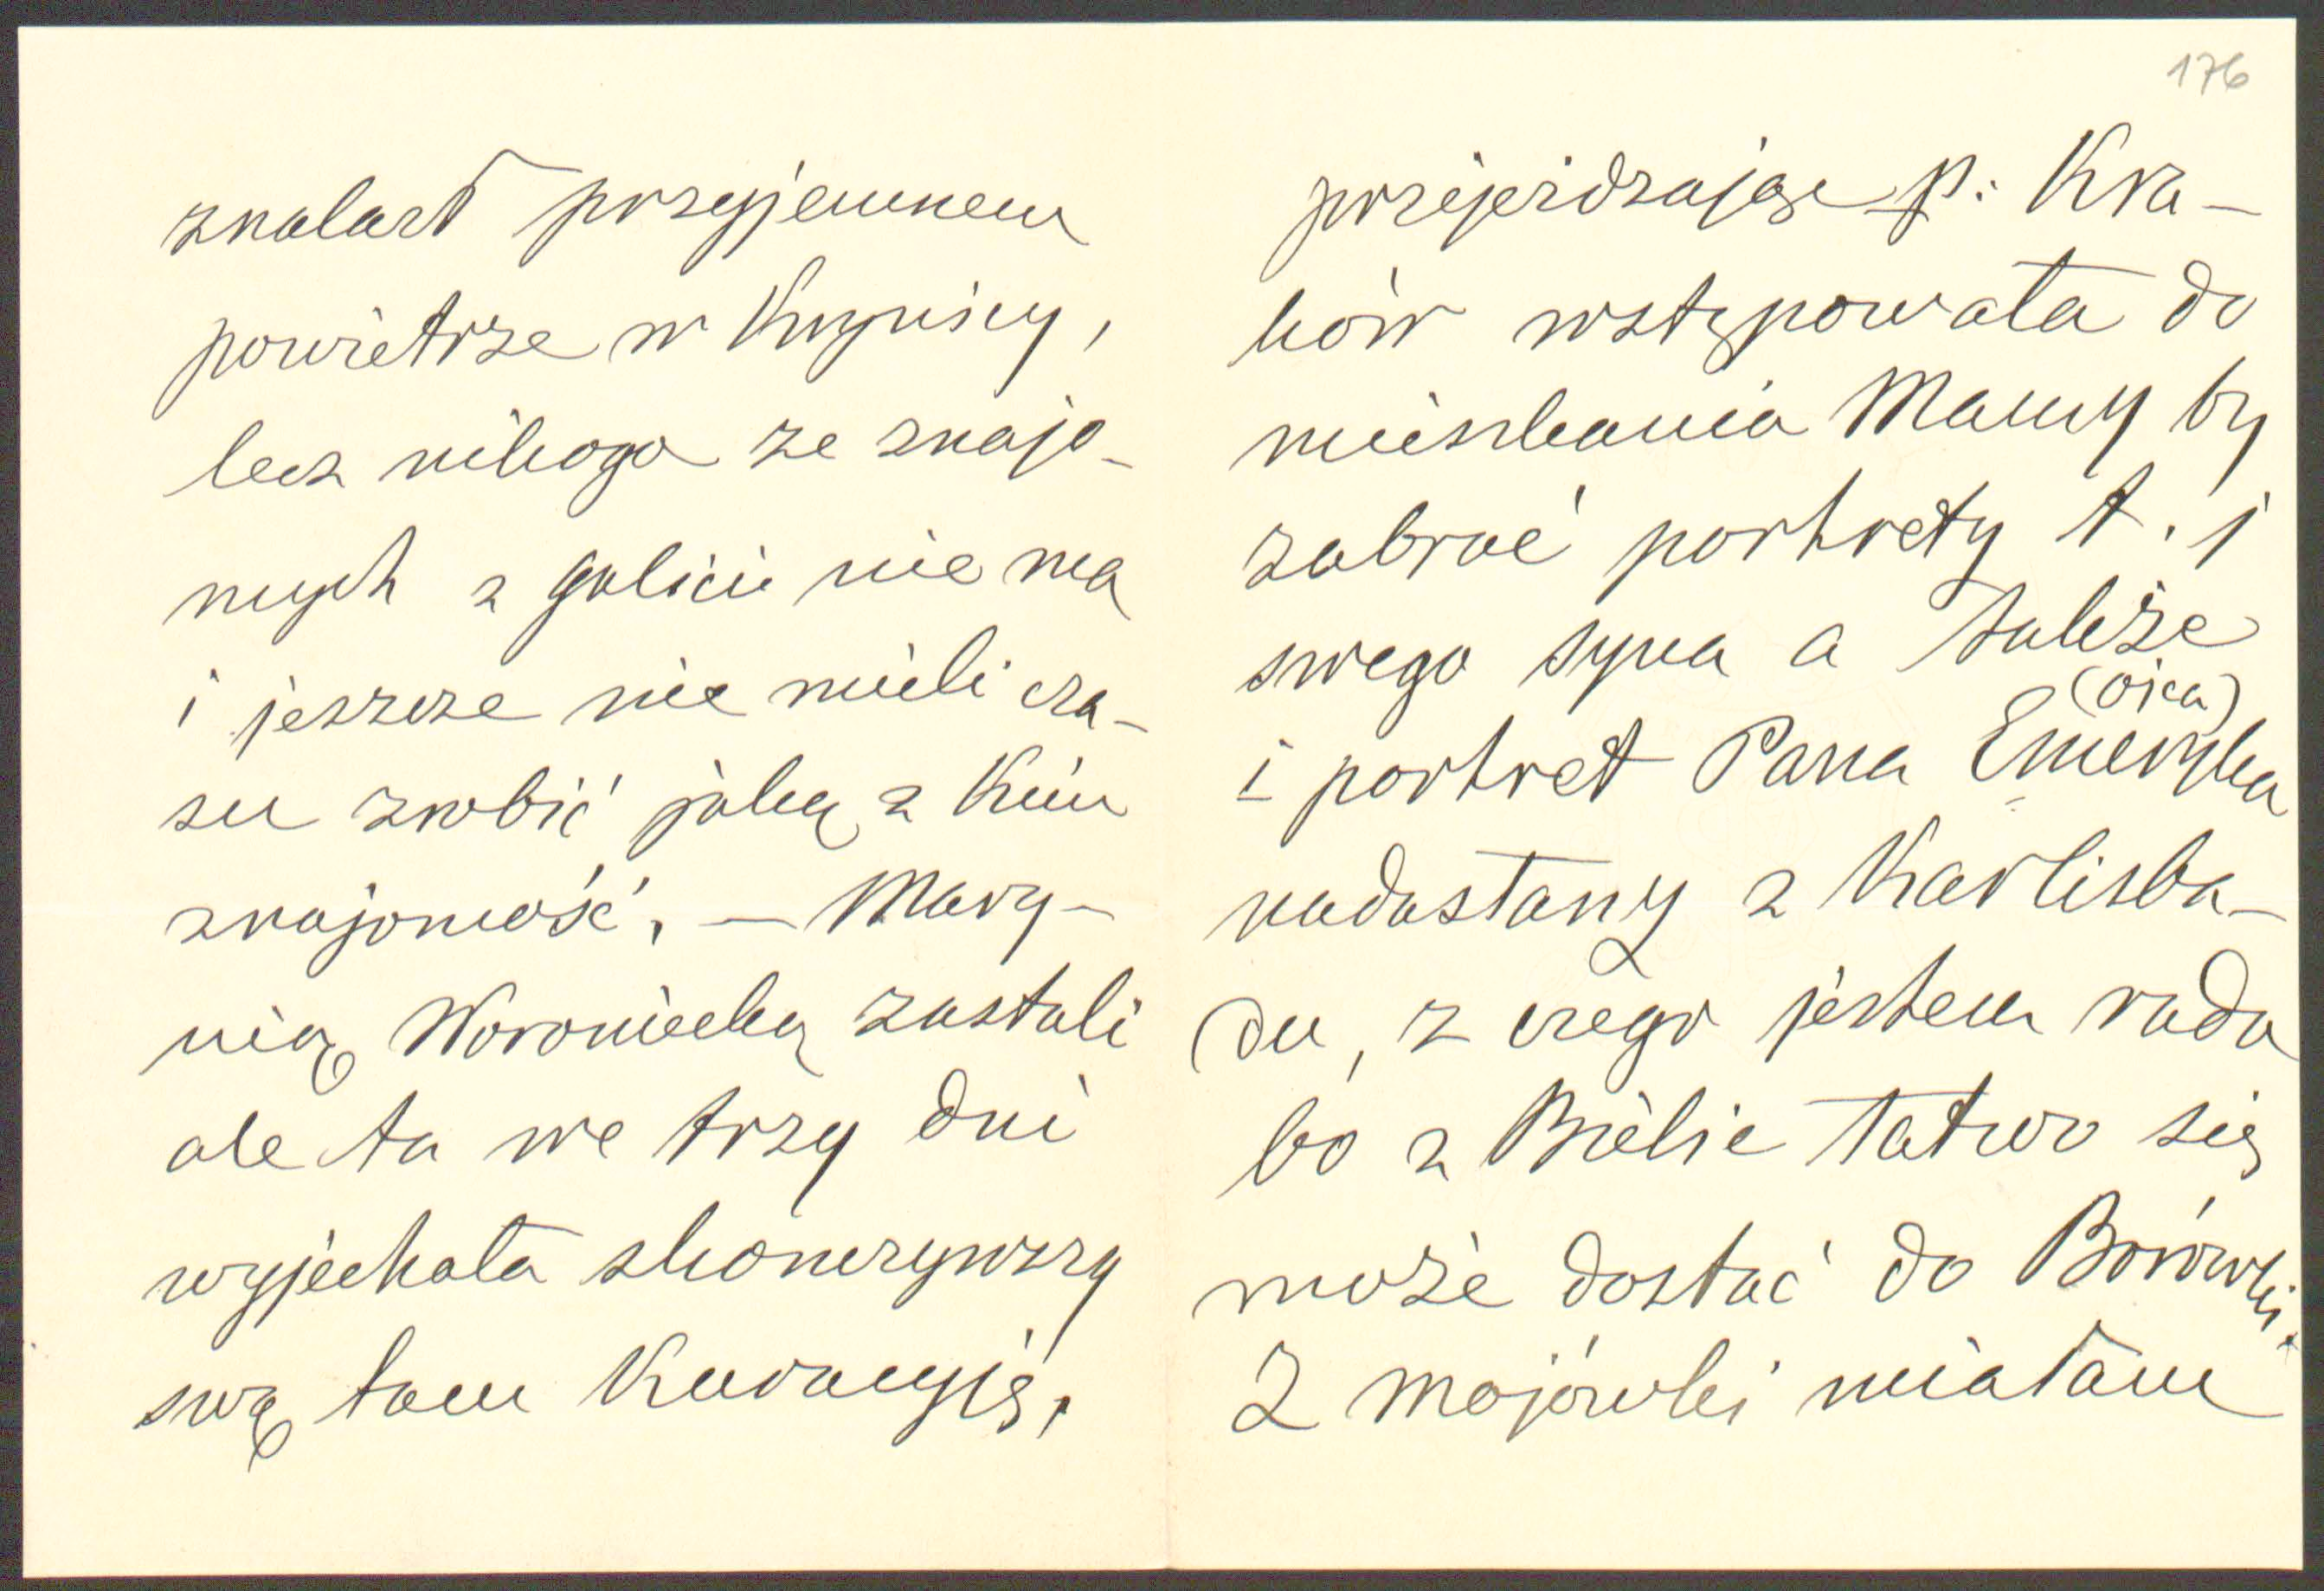 znalazł przyjemnem
powietrze w Krynicy,
lecz nikogo ze znajo-
mych z Galicii nie ma
i jeszcze nie mieli cza-
su zrobić jaką z Kim
znajomość. — Mary-
nią Woroniecką zastali
ale ta we trzy dni
wyjechała skonczywszy
swą tam Kuracyję.
176
przejeżdzając p: Kra-
ków wstępowała do
mieszkania Mamy by
zabrać portrety t. j
swego syna a także
(ojca)
i portret Pana Emeryka
nadesłany z Karlisba-
du, z czego jestem rada
bo z Bielic łatwo się
może dostać do Borówki.
Z Majówki miałam